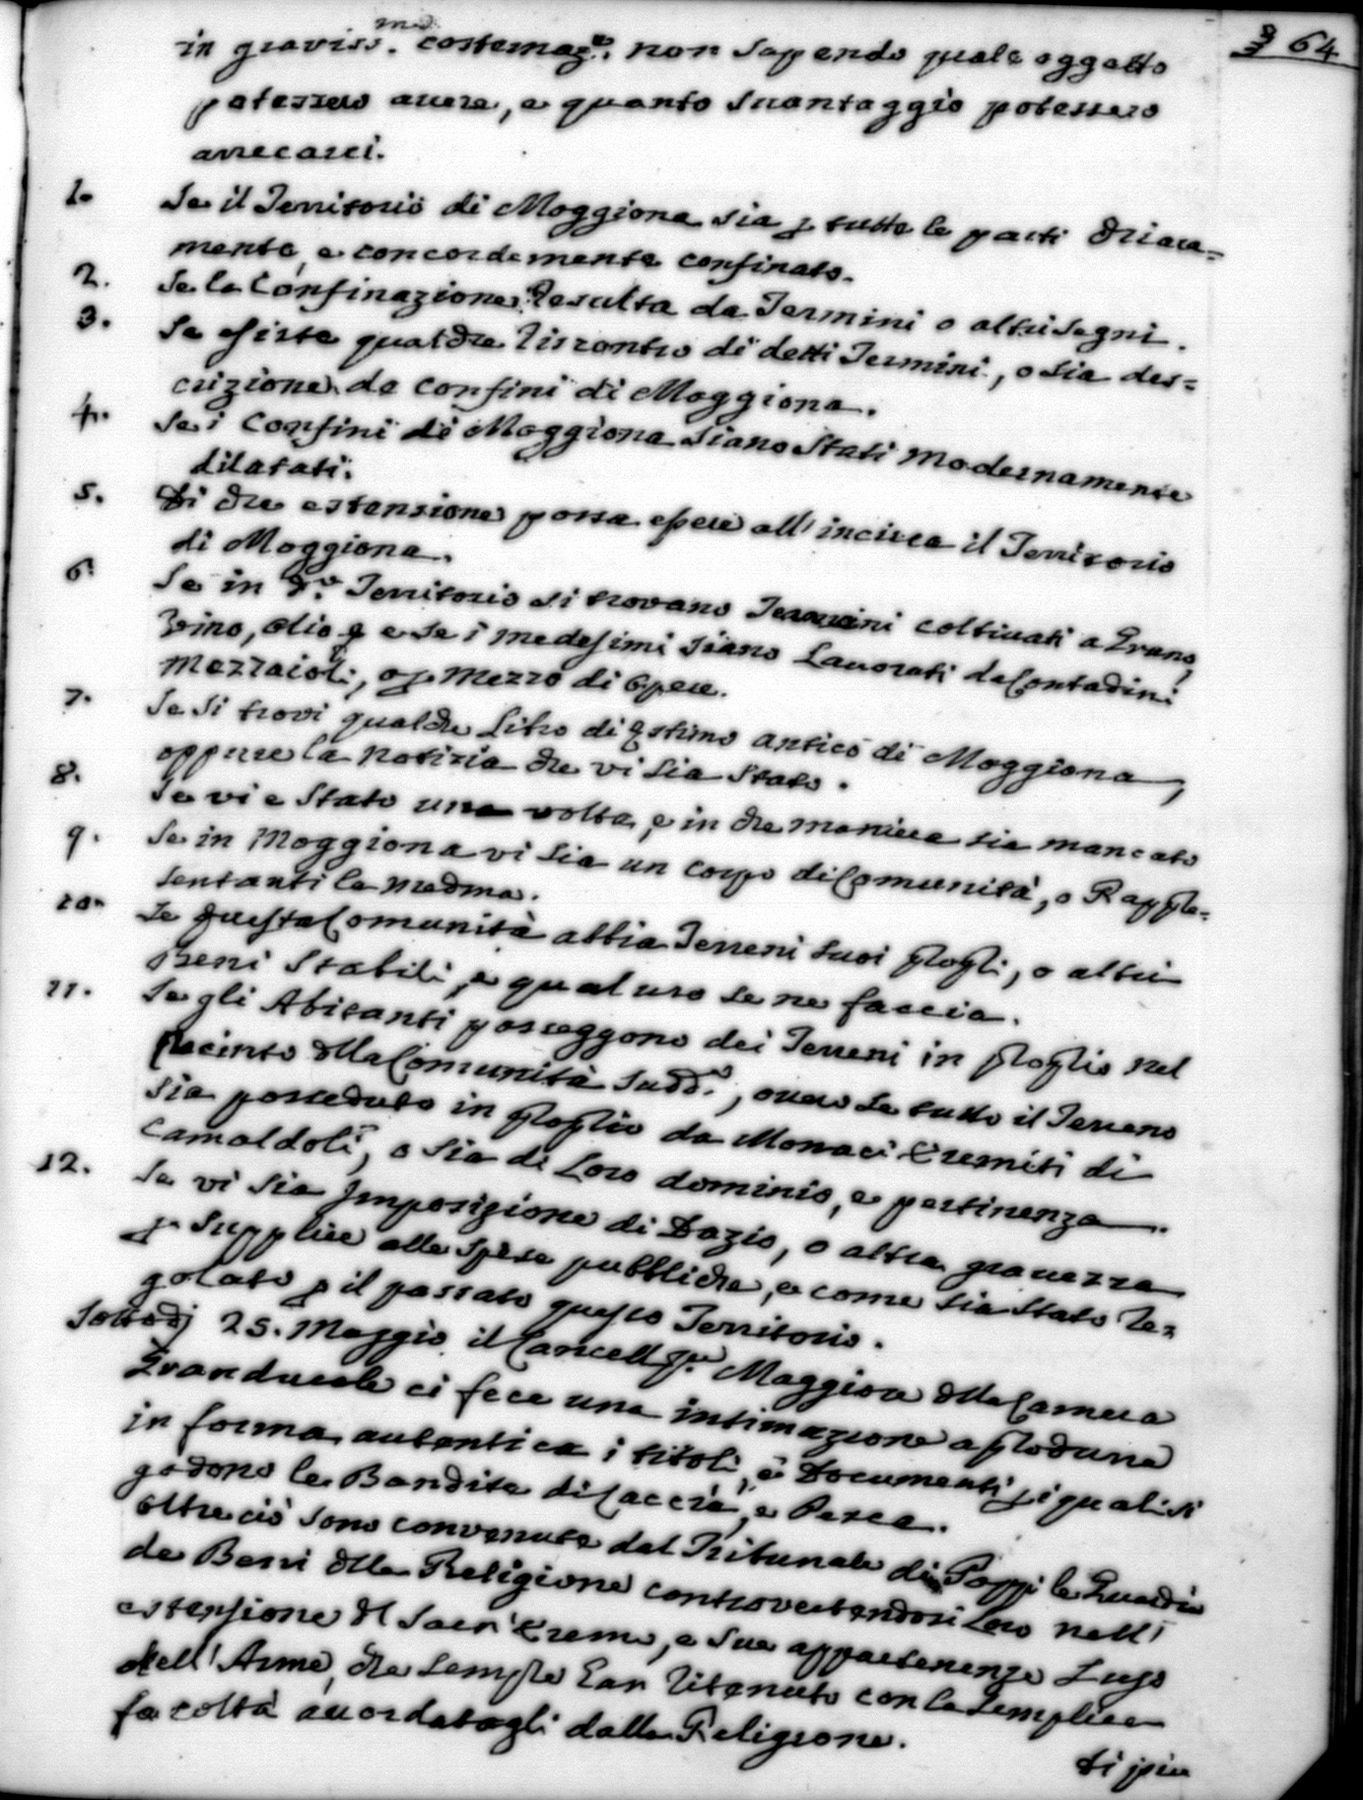 64
in graviss.ma costernaz.e non sapendo quale oggetto
potessero avere, e quanto svantaggio potessero
arrecarci.
1. Se il Territorio di Moggiona sia p tutte le parti chiara=
mente, e concordemente confinato.
2. Se la Confinazione resulta da Termini o altri segni.
3. Se esiste qualche riscontro di detti Termini, o sia des=
crizione de Confini di Moggiona.
4. Se i Confini di Moggiona siano stati modernamente
dilatati.
5. Di che estensione possa essere all'incirca il Territorio
di Moggiona.
6. Se in d.o Territorio si trovano Terreni coltivati a Grano,
Vino, olio e se i medesimi siano Lavorati da Contadini
Mezzaioli, o p mezzo di opere.
7. Se si trovi qualche Libro di Estimo antico di Moggiona,
oppure la notizia che vi sia stato.
8. Se vi e stato una volta, e in che maniera sia mancato
9. Se in Moggiona vi sia un corpo di Comunità, o Rappre=
sentanti la medma.
10. Se questa Comunità abbia Terreni suoi proprj, o altri
Beni Stabili, e qual uso se ne faccia.
11. Se gli Abitanti posseggono dei Terreni in proprio nel
Recinto della Comunità sudd.a, overo se tutto il Terreno
sia posseduto in proprio da Monaci Eremiti di
Camaldoli, o sia di Loro dominio, e pertinenza.
12. Se vi sia Imposizione di Dazio, o altra gravezza
p supplire alle spese pubbliche, e come sia stato re=
golato p il passato questo Territorio.
Sottodj 25. Maggio il Cancell.re Maggiore della Camera
Granducale ci fece una intimazione a produrre
in forma autentica i titoli, e Documenti p i quali si
godono le Bandite di Caccia, e Pesca.
oltrecio sono convenute dal Tribunale di Poppi le Guardie
de Beni della Religione controvertendosi Loro nell'
estensione del Sacr'Eremo, e sue appartenenze L'uso
dell'Arme, che sempre han ritenuto con la semplice
facoltà accordatagli dalla Religione.
di piu